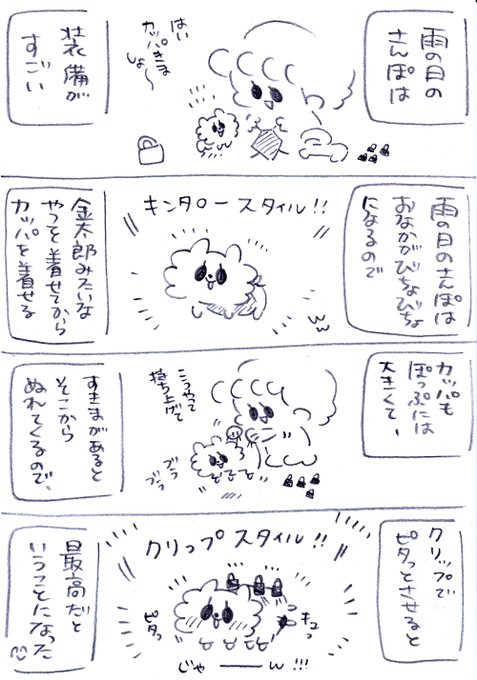 雨の日の
さんぽは
はい
カッパきま
しょ〜
装備が
すごい
雨の日のさんぽは
おなかがびちょびちょ
になるので
キンタロースタイル!!
ww
金太郎みたいな
やつを着せてから
カッパを着せる
カッパも
ぽっぷには
大きくて、
こうやって
持ち上げて
ブラ
ブラ
すきまがあると
そこから
ぬれてくるので、
クリップで
ピタっとさせると
クリップスタイル!!
キュッ
ピタっ
じゃーーん!!!
最高だと
いうことになった